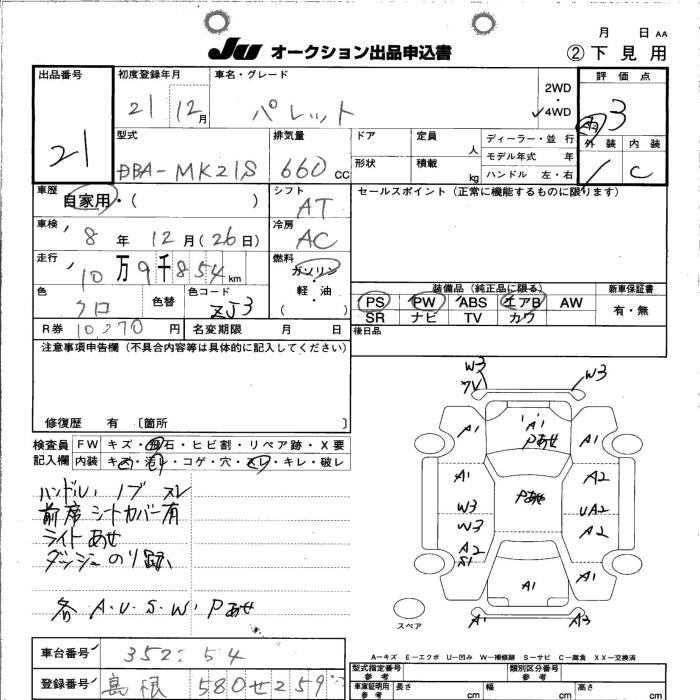 月 日 AA
JU オークション出品申込書 ②下見用
出品番号 21
初度登録年月 21 12月
車名・グレード パレット
2WD・✓4WD
評価点 雨 3
外装 内装 C
型式 DBA-MK21S
排気量 660 CC
ドア 形状
定員 人
積載 kg
ディーラー・並 行
モデル年式 年
ハンドル 左・右
車歴 自家用・( )
シフト AT
セールスポイント(正常に機能するものに限ります)
車検 8年 12月(26日)
冷房 AC
走行 10万9千854km
燃料 ガソリン・軽油 ( )
色 クロ 色替 色コード ZJ3
装備品(純正品に限る) 新車保証書
PS PW ABS エアB AW 有・無
SR ナビ TV カワ
R券 10,270円 名変期限 月 日
後日品
注意事項申告欄(不具合内容等は具体的に記入してください)
修復歴 有 〔箇所 〕
検査員 FW キズ・飛石・ヒビ割・リペア跡・X要
記入欄 内装 キズ・汚れ・コゲ・穴・スレ・キレ・破レ
ハンドル、ノブ スレ
前席 シートカバー有
ライトあせ
ダッシュ のり跡
各 A・U・S・W・Pあせ
W3 W3
A1 A1
Pあせ
A1
A1 A2
Pあせ
W3 UA2
W3 A2
A2
S1
A1
A1
A1 A3
スペア
A－キズ E－エクボ U－凹み W－補修跡 S－サビ C－腐食 XX－交換済
車台番号 352 54
登録番号 島根 580せ259
型式指定番号 参考
類別区分番号 参考
車庫証明用 参考 長さ cm 幅 cm 高さ cm